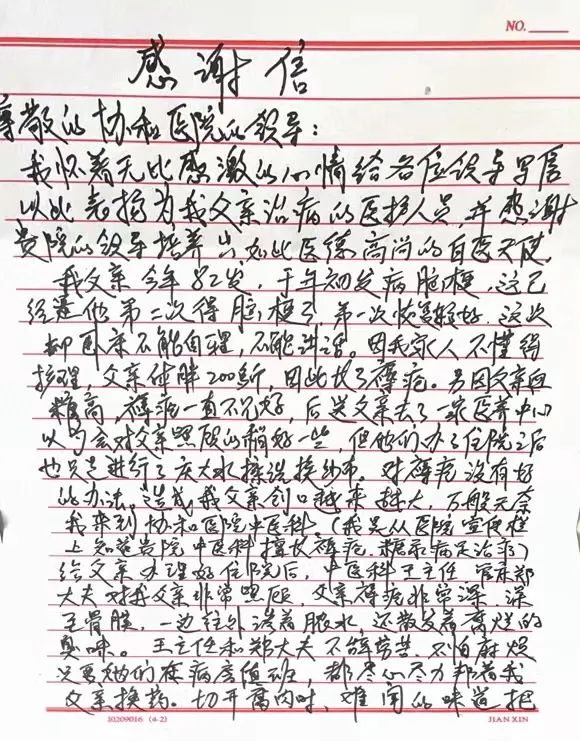 NO.
感谢信
尊敬的协和医院的领导：
我怀着无比感激的心情给各位领导写信
以此表扬为我父亲治病的医护人员，并感谢
贵院的领导培养出如此医德高尚的白衣天使
我父亲今年82岁，于年初发病脑梗，这已
经是他第二次得脑梗了，第一次恢复较好，这次
却卧床不能自理，不能讲话。因我家人不懂得
护理，父亲体胖200多斤，因此长了褥疮。另因父亲血
糖高，褥疮一直不见好，后送父亲去了一家医养中心
以为会对父亲照顾的稍好一些，但他们办了住院之后
也只是进行了庆大水擦洗换纱布。对褥疮没有好
的办法。造成我父亲创口越来越大，万般无奈
我来到协和医院中医科（我是从医院宣传栏
上知道贵院中医科擅长褥疮、糖尿病足治疗）
给父亲办理好住院后，中医科王主任 郑
大夫对我父亲非常照顾，父亲褥疮非常深，深
至骨膜，一边往外淌着脓水，还散发着腐烂的
臭味。王主任和郑大夫不辞劳苦、不怕麻烦
只要她们在病房值班，都尽心尽力帮着我
父亲换药。切开腐肉时，难闻的味道把
10209016 (4-2)
JIAN XIN